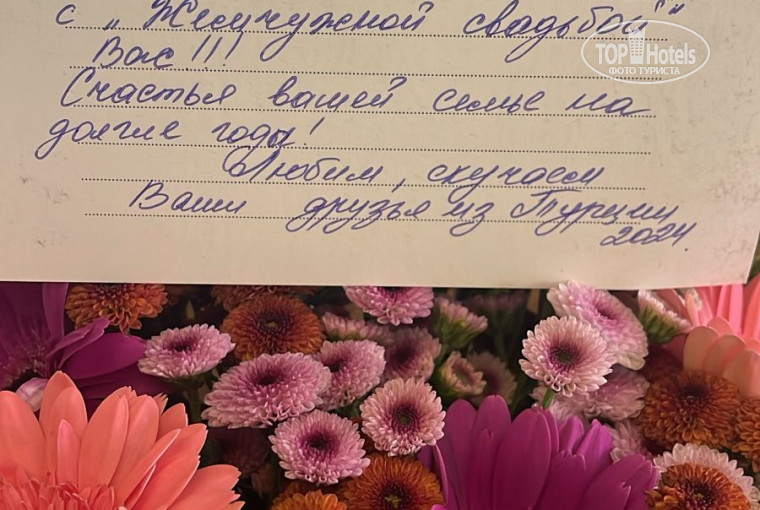 с „Жемчужной свадьбой"
Вас!!!
Счастья вашей семье на
долгие годы!
Любим, скучаем
Ваши друзья из Турции
2024.
TOP Hotels
ФОТО ТУРИСТА